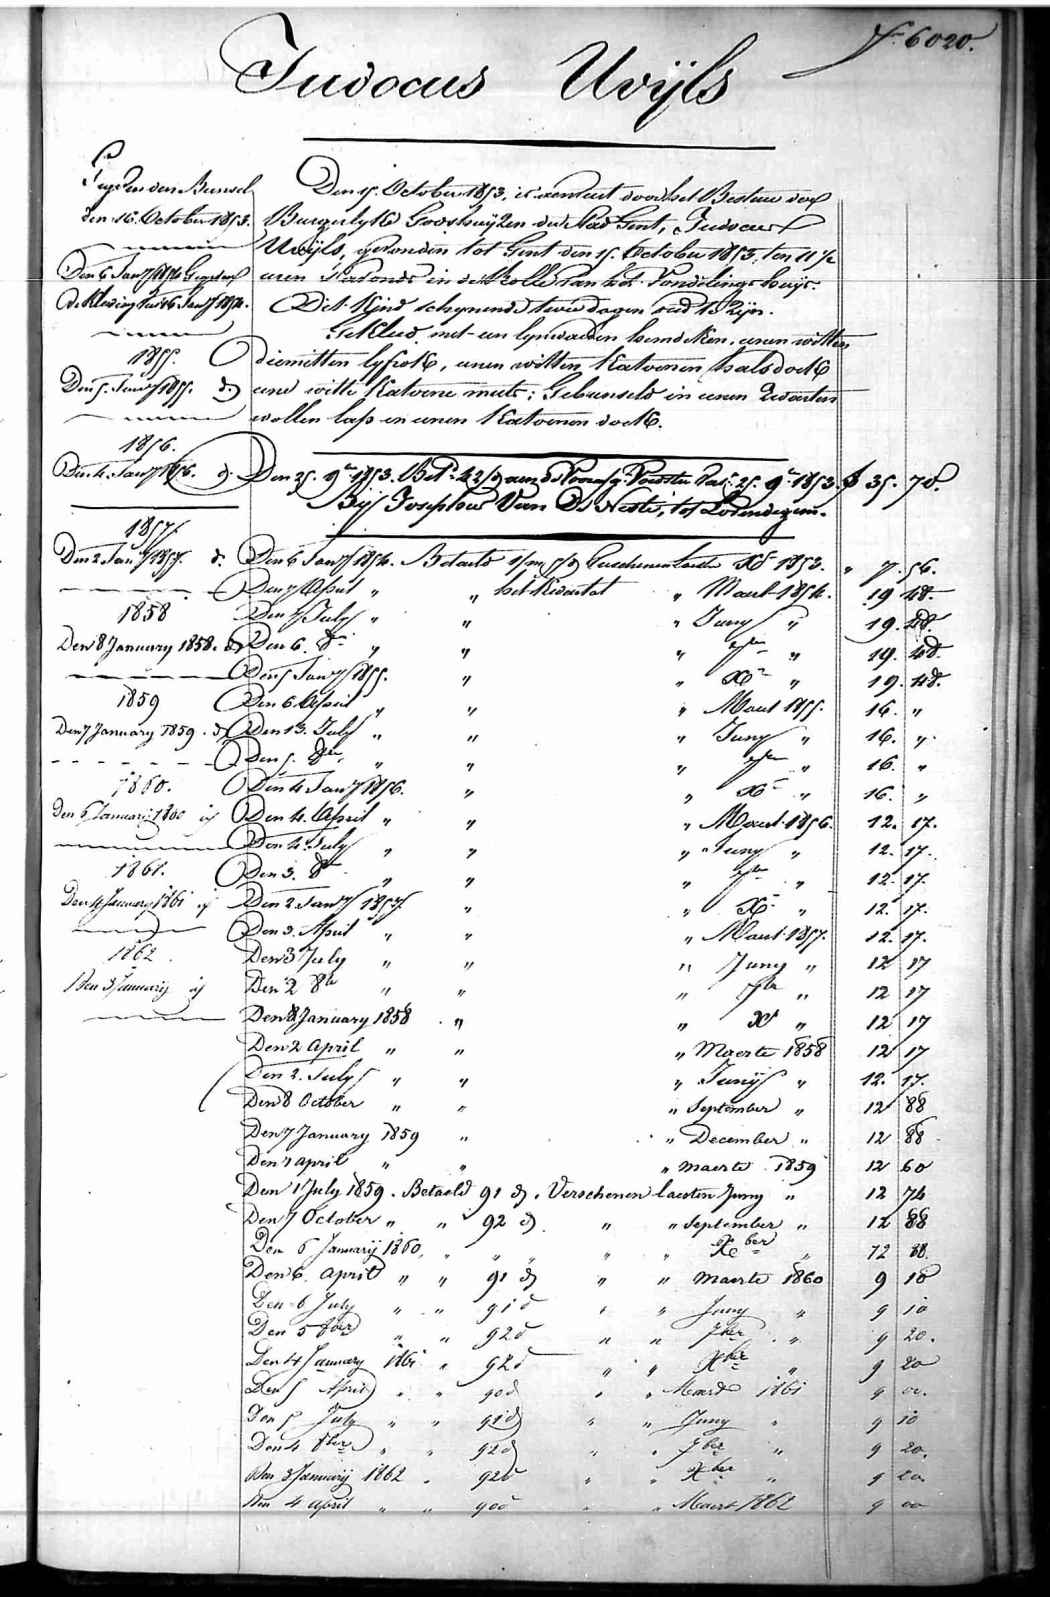 f. 6020.
Judocus Uvijls
Den 15. October 1853, is aenveert door het Bestuer der
Burgerlyke Godshuyzen der Stad Gent, Judocus
Uvijls, gevonden tot Gent den 15. October 1853, ten 11 ½
uren s'avonds in de Rolle van het Vondelingshuys.
Dit Kind schynende twee dagen oud te zijn.
Gekleed met een lynwaeden hemdeken, eenen witten
diemitten lyfrok, eenen witten Katoenen halsdoek
eene witte Katoene muts; Gebunseld in eenen Zwarten
wollen lap en eenen Katoenen doek.
den 16. October 1853.
1855.
Den 5. Jany 1855. d.
1856.
Den 4. Jany 1856. d.
1857.
Den 2. Jany 1857. d.
1858
Den 8 January 1858. d.
1859
Den 7 January 1859. d.
1860.
den 6 January 1860 ij
1861.
Den 4 January 1861 ij
1862
Den 3 January ij
Den 25. 9r 1853. 25. 9r 1853 35. 78.
Bij Josephus Van De Neste, tot Lovendegem.
Den 6 Jany 1854. Betaeld Xr 1853. " 7. 56.
Den 7 April " " het Kwartael " Maert 1854. 19 48.
Den 7 July " " " Juny " 19. 48.
Den 6. 8r " " " 7r " 19. 48
Den 5 Jany 1855. " " Xr " 19. 48.
Den 6 April " " " Maert 1855. 16. "
Den 13. July " " " Juny " 16. "
Den 5. 8r " " " 7r " 16. "
Den 4 Jany 1856. " " Xr " 16. "
Den 4. April " " " Maert 1856. 12. 17.
Den 4 July " " " Juny " 12. 17.
Den 3. 8r " " " 7r " 12. 17.
Den 2 Jany 1857. " " Xr " 12. 17.
Den 3. April " " " Maert 1857. 12. 17.
Den 3 July " " " Juny " 12 17
Den 2 8r " " " 7r " 12 17
Den 8 January 1858 " " Xr " 12 17
Den 2 April " " " Maerte 1858 12 17
Den 2. July " " " Junij " 12. 17.
Den 8 October " " " September " 12 88
Den 7 January 1859 " " December " 12 88
Den 1 april " " " maerte 1859 12 60
Den 1 July 1859. Betaeld 91 d. Verschenen laesten Juny " 12 74
Den 7 October " " 92 d. " " September " 12 88
Den 6 Januarij 1860, " " " " Xber " 12 88.
Den 6. April " " 91 d " " maerte 1860 9 10
Den 6 July " " 91 d " " Juny " 9 10
Den 5 8ber " " 92 d " " 7ber " 9 20.
Den 4 January 1861 " 92 d " " Xber " 9 20
Den 5 April " " 90 d " " Maert 1861 9 00.
Den 5 July " " 91 d " " Juny " 9 10
Den 4 8ber " " 92 d " " 7ber " 9 20.
Den 3 Januarij 1862 " 92 d " " Xber " 9 20
Den 4 april " " 90 d " " Maert 1862 9 00